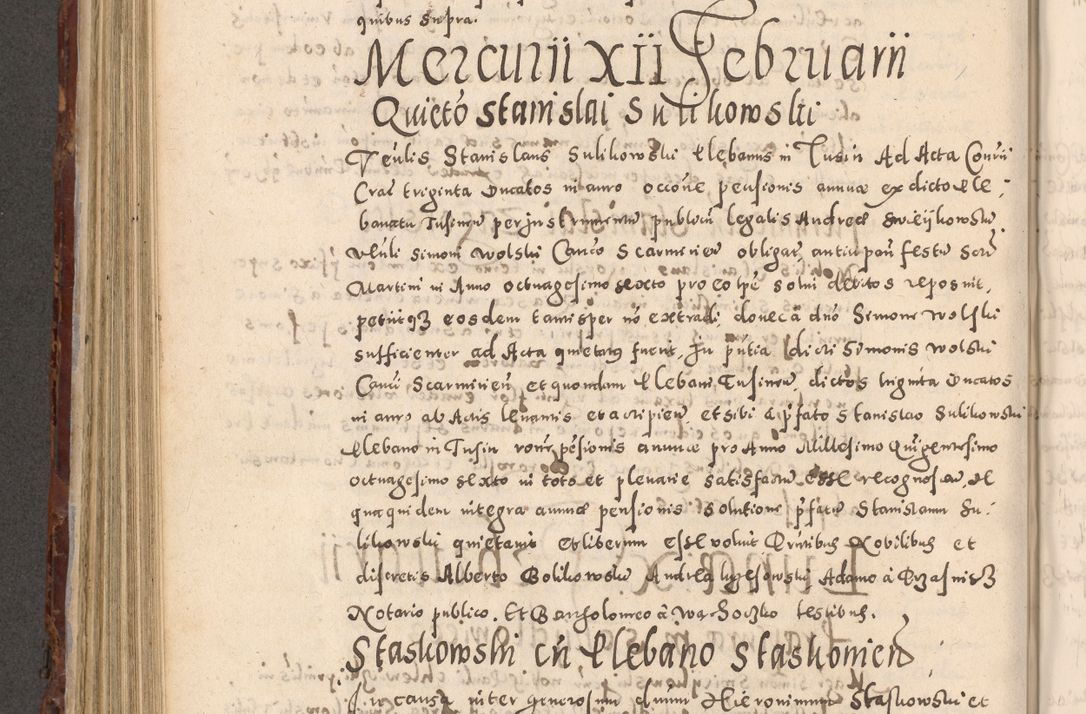 quibus supra.
Mercurii XII Februarii
Quietō Stanislai Sulikowskii
Stanislaus Sulikowski Plebanus in Tusin Ad Acta
Crac triginta Ducatos in auro occōne pensionis annuæ ex dicto Ple-
banatu Tusineñ per Instrumentū publicū legalis Andreæ
Simoni Wolski Canco Scarmirieñ obligat, festū
Martini in Anno octuagesimo sexto pro eolpe solui debitos reposuit,
petiitqz eosdem tantisper nō extradi, donec ā dnō Simone Wolski
sufficienter ad Acta quietatus fuerit. In pñtia dicti Simonis Wolski
Canci Scarmirieñ et quondam Plebani Tusineñ, dictos triginta Ducatos
in auro ab Actis levantis et accipieñ, et sibi ā pfato Stanislao Sulikowski
Plebano in Tusin pēsionis annuæ pro Anno Millesimo Quigentesimo
octuagesimo sexto in toto et plenarie satisfactū esse recognoscēn, de
qua quidem integra annuæ pensionis solutione pfatū Stanislaum Su-
likowski quietauit et liberum esse voluit Pñtibus Nobilibus et
discretis Alberto Bolikowski Andrea Adamo ā
Notario publico. Et Bartholomeo ā Warhoczko testibus.
Staskowski cū Plebano Staskowieñ
In causa inter generosum dnum Hieronimum Staskowski et